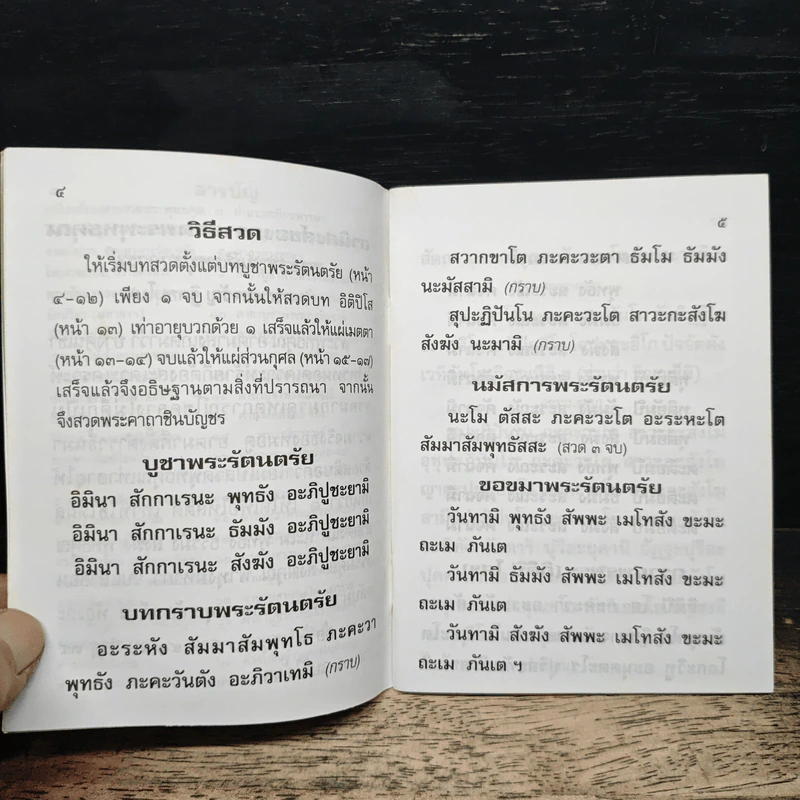 ๔
วิธีสวด
ให้เริ่มบทสวดตั้งแต่บทบูชาพระรัตนตรัย (หน้า
๔-๑๒) เพียง ๑ จบ จากนั้นให้สวดบท อิติปิโส
(หน้า ๑๓) เท่าอายุบวกด้วย ๑ เสร็จแล้วให้แผ่เมตตา
(หน้า ๑๓-๑๔) จบแล้วให้แผ่ส่วนกุศล (หน้า ๑๕-๑๗)
เสร็จแล้วจึงอธิษฐานตามสิ่งที่ปรารถนา จากนั้น
จึงสวดพระคาถาชินบัญชร
บูชาพระรัตนตรัย
อิมินา สักกาเรนะ พุทธัง อะภิปูชะยามิ
อิมินา สักกาเรนะ ธัมมัง อะภิปูชะยามิ
อิมินา สักกาเรนะ สังฆัง อะภิปูชะยามิ
บทกราบพระรัตนตรัย
อะระหัง สัมมาสัมพุทโธ ภะคะวา
พุทธัง ภะคะวันตัง อะภิวาเทมิ (กราบ)
๕
สวากขาโต ภะคะวะตา ธัมโม ธัมมัง
นะมัสสามิ (กราบ)
สุปะฏิปันโน ภะคะวะโต สาวะกะสังโฆ
สังฆัง นะมามิ (กราบ)
นมัสการพระรัตนตรัย
นะโม ตัสสะ ภะคะวะโต อะระหะโต
สัมมาสัมพุทธัสสะ (สวด ๓ จบ)
ขอขมาพระรัตนตรัย
วันทามิ พุทธัง สัพพะ เมโทสัง ขะมะ
ถะเม ภันเต
วันทามิ ธัมมัง สัพพะ เมโทสัง ขะมะ
ถะเม ภันเต
วันทามิ สังฆัง สัพพะ เมโทสัง ขะมะ
ถะเม ภันเต ฯ